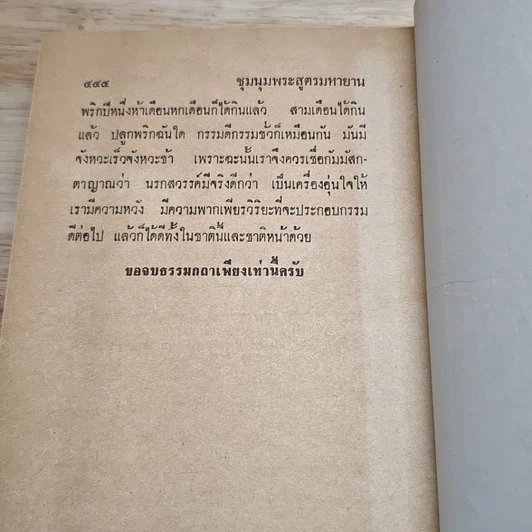 ๔๔๔ ชุมนุมพระสูตรมหายาน
พริกปีหนึ่งห้าเดือนหกเดือนก็ได้กินแล้ว สามเดือนได้กิน
แล้ว ปลูกพริกฉันใด กรรมดีกรรมชั่วก็เหมือนกัน มันมี
จังหวะเร็วจังหวะช้า เพราะฉะนั้นเราจึงควรเชื่อกัมมัสก-
ตาญาณว่า นรกสวรรค์มีจริงดีกว่า เป็นเครื่องอุ่นใจให้
เรามีความหวัง มีความพากเพียรวิริยะที่จะประกอบกรรม
ดีต่อไป แล้วก็ได้ดีทั้งในชาตินี้และชาติหน้าด้วย
ขอจบธรรมกถาเพียงเท่านี้ครับ